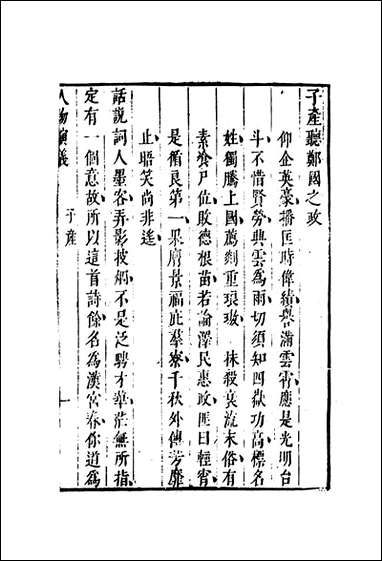 子產聽鄭國之政
仰企英豪播匡時偉績譽滿雲霄應是光明台
斗不惜賢勞興雲為雨切須知四嶽功高標名
姓獨騰上國薦剡重琅璈 抹殺哀流末俗有
素飡尸位敗德根苗若論澤民惠政匪曰輕宵
是循良第一果膺景福庇羣寮千秋外傳芳靡
止晤笑尚非遙
話說詞人墨客弄影披綱不是泛騁才華茫無所指
定有一個意故所以這首詩餘名為漢宮春你道為
人物演義 子產 一